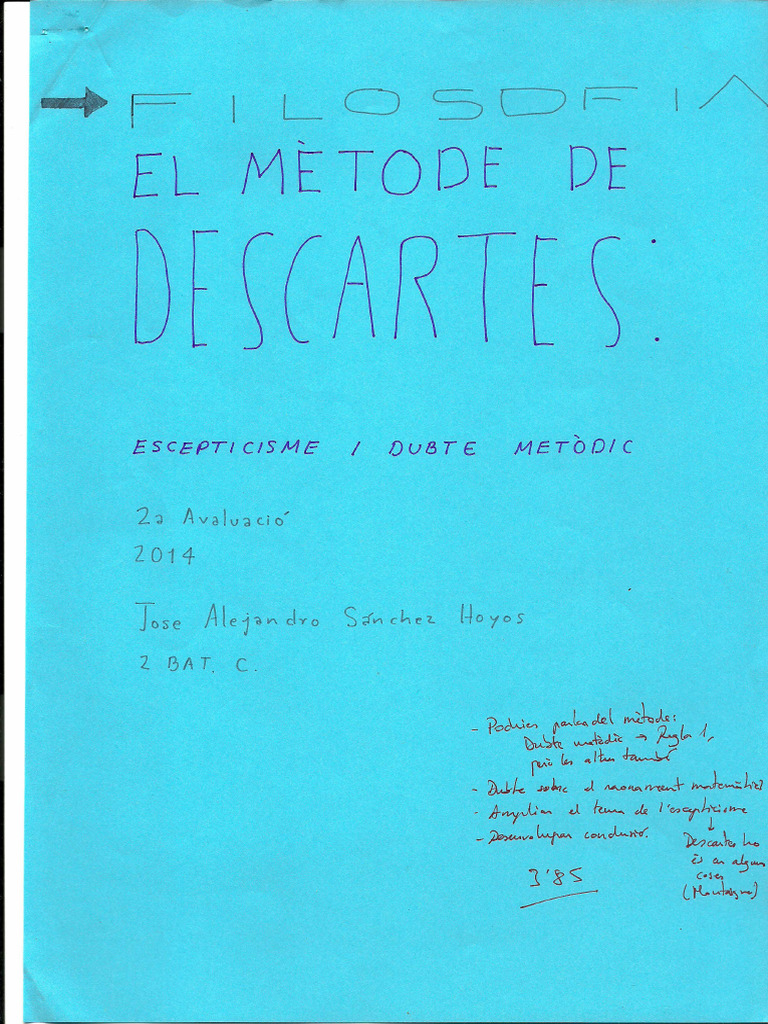 FILOSOFIA
EL MÈTODE DE
DESCARTES:
ESCEPTICISME / DUBTE METÒDIC
2a Avaluació
2014
Jose Alejandro Sánchez Hoyos
2 BAT. C.
- Podries parlar del mètode:
Dubte metòdic → Regla 1,
però les altres també
- Dubte sobre el raonament matemàtic?
- Ampliar el tema de l'escepticisme
↓
- Desenvolupar conclusió.
Descartes ho
és en algunes
coses
(Montaigne)
3'85